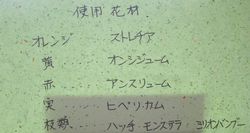 使用花材
オレンジ ストレチア
黄 オンシジューム
赤 アンスリューム
実 ヒペリカム
枝類 ハッチ モンステラ ミリオンバンブー